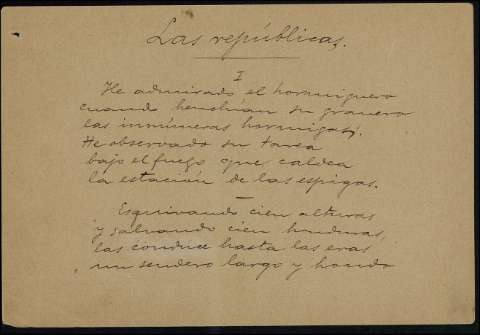 Las repúblicas.
I
He admirado el hormiguero
cuando henchían su granero
las innúmeras hormigas.
He observado su tarea
bajo el fuego que caldea
la estación de las espigas.
Esquivando cien alturas
y salvando cien honduras,
las conduce hasta las eras
un sendero largo y hondo